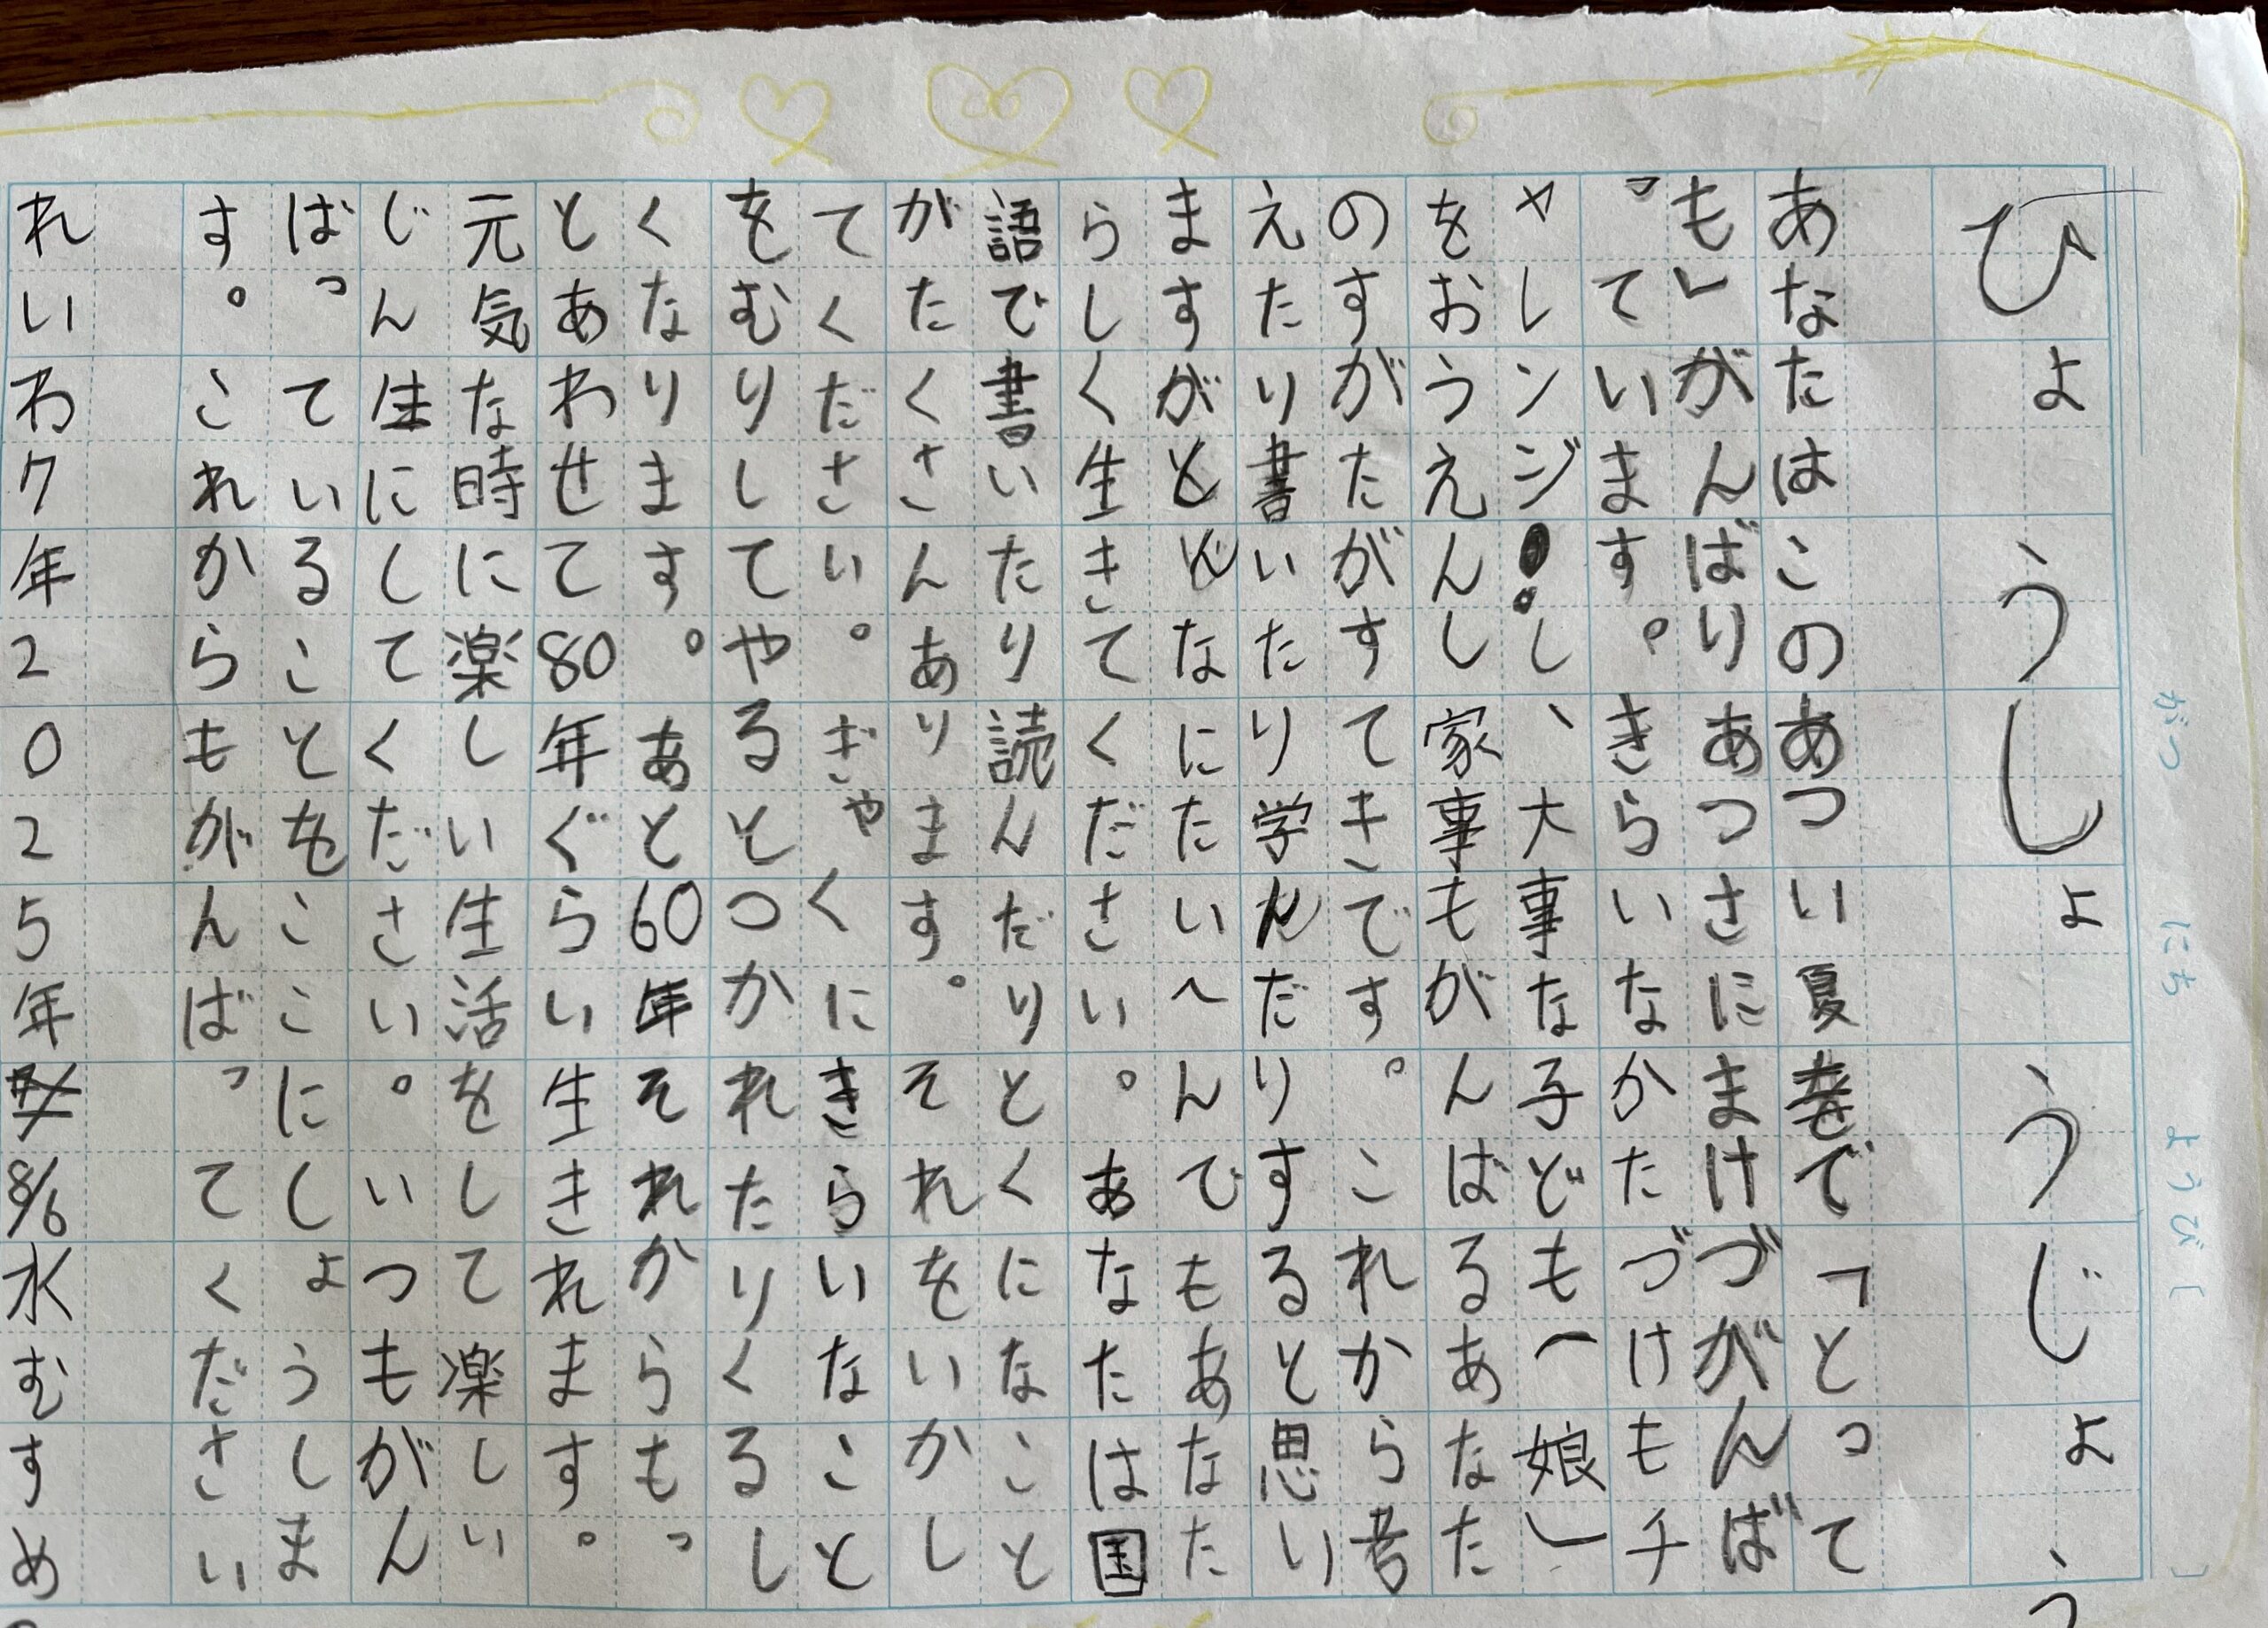 がつ にち ようび〔 〕
ひょうしょうじょう
あなたはこのあつい夏で「とって
も」がんばりあつさにまけづがんば
っています。きらいなかたづけもチ
ャレンジ!し、大事な子ども(娘)
をおうえんし家事もがんばるあなた
のすがたがすてきです。これから考
えたり書いたり学んだりすると思い
ますがとんなにたいへんでもあなた
らしく生きてください。あなたは国
語で書いたり読んだりとくになこと
がたくさんあります。それをいかし
てください。ぎゃくにきらいなこと
をむりしてやるとつかれたりくるし
くなります。あと60年それからもっ
とあわせて80年ぐらい生きれます。
元気な時に楽しい生活をして楽しい
じん生にしてください。いつもがん
ばっていることをここにしょうしま
す。これからもがんばってください
れいわ7年2025年8/6水むすめ